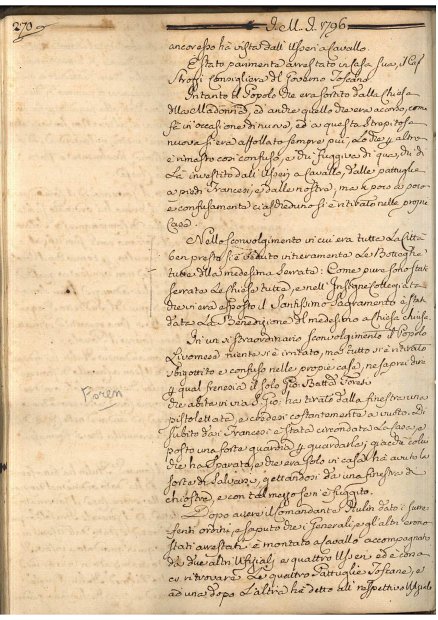 270
I. M. I. 1796
ancor esso hà vista dall'Usseri a Cavallo.
È stato parimente arrestato in Casa sua, il Cas
Strozzi Consigliere del Governo Toscano.
Intanto il Popolo che era sortito dalla Chiesa
della Madonna, ed anche quello che vi era acorso, come
se in occasione di nuova, ed a questa strepitosa
nuova si era affollato sempre più, Lo che 4 altro
è rimasto così confuso, e chi fuggiva di qua, chi di
Là investito dall'Usseri a Cavallo, dalle pattuglie
a piedi Francesi, e dalle nostre, ma à poco a poco
e confusamente ciascheduno si è ritirato nelle proprie
Case.
Nello sconvolgimento in cui era tutta La Città
ben presto si è veduto intieramente Le Botteghe
tutte della medesima Serrate: Come pure sono state
serrate Le Chiese tutte, e nell'Insigne Collegiata
che vi era esposto il Santissimo Sagramento è stata
data La Benedizione del medesimo a Chiesa chiusa.
In un sì straordinario sconvolgimento il Popolo
Livornese niente si è irritato, ma tutto si è ritirato
sbigottito e confuso nelle proprie case, ne saprei dire
4 qual frenesia il solo Gio. Batta Foren
che abita in via S. Gio: hà tirato dalla finestra una
pistolettata, e credesi costantemente a vuoto, ed
subito dai Francesi è stata circondata La Casa, e
posto una forte guardia 4 guardarla; giacchè colui
che hà sparato, e che era solo in casa hà avuto la
sorte di salvarsi gettandosi da una finestra di
chiostre, e con tal mezzo se n'è fuggito.
Dopo avere il Comandante Hulin dato i sure-
feriti ordini, e saputo che i Generali, e gl'altri erono
stati arrestati è montato a Cavallo accompagnato
da due altri Ufiziali e quattro Usseri ed è corso
a ritrovare Le quattro Pattuglie Toscane, e
ad una dopo L'altra hà detto all'respettivo Ufiziale
Foren